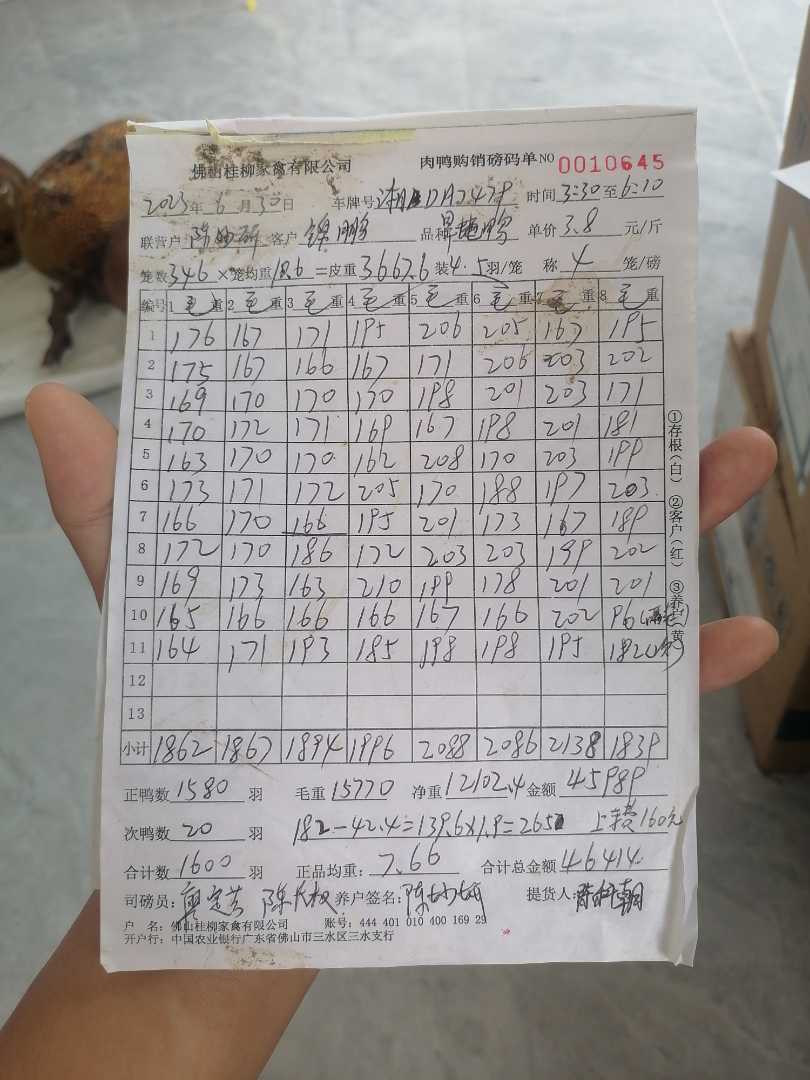 佛山桂柳家禽有限公司 肉鸭购销磅码单 NO 0010645
2023年 6月 30日 车牌号 时间 3:30 至 6:10
联营户 客户 锦鹏 品种 单价 3.8 元/斤
笼数 346 ×笼均重 10.6 =皮重 3667.6 装 4.5 羽/笼 称 4 笼/磅
编号 1 毛重 2 毛重 3 毛重 4 毛重 5 毛重 6 毛重 7 毛重 8 毛重
1 176 167 171 195 206 205 167 195
2 175 167 166 167 171 206 203 202
3 169 170 170 170 198 201 203 171
4 170 172 171 169 167 198 201 181
5 163 170 170 162 208 170 203 199
6 173 171 172 205 170 188 197 203
7 166 170 166 195 201 173 167 189
8 172 170 186 172 203 203 199 202
9 169 173 163 210 199 178 201 201
10 165 166 166 166 167 166 202 96
11 164 171 193 185 198 198 195 182
12
13
小计 1862 1867 1894 1996 2088 2086 2138 1839
正鸭数 1580 羽 毛重 15770 净重 12102.4 金额 45989
次鸭数 20 羽 182-42.4=139.6×1.9=265 160元
合计数 1600 羽 正品均重: 7.66 合计总金额 46414
司磅员: 养户签名: 提货人:
户 名: 佛山桂柳家禽有限公司 账号: 444 401 010 400 169 29
开户行: 中国农业银行广东省佛山市三水区三水支行
①存根(白) ②客户(红) ③养户(黄)